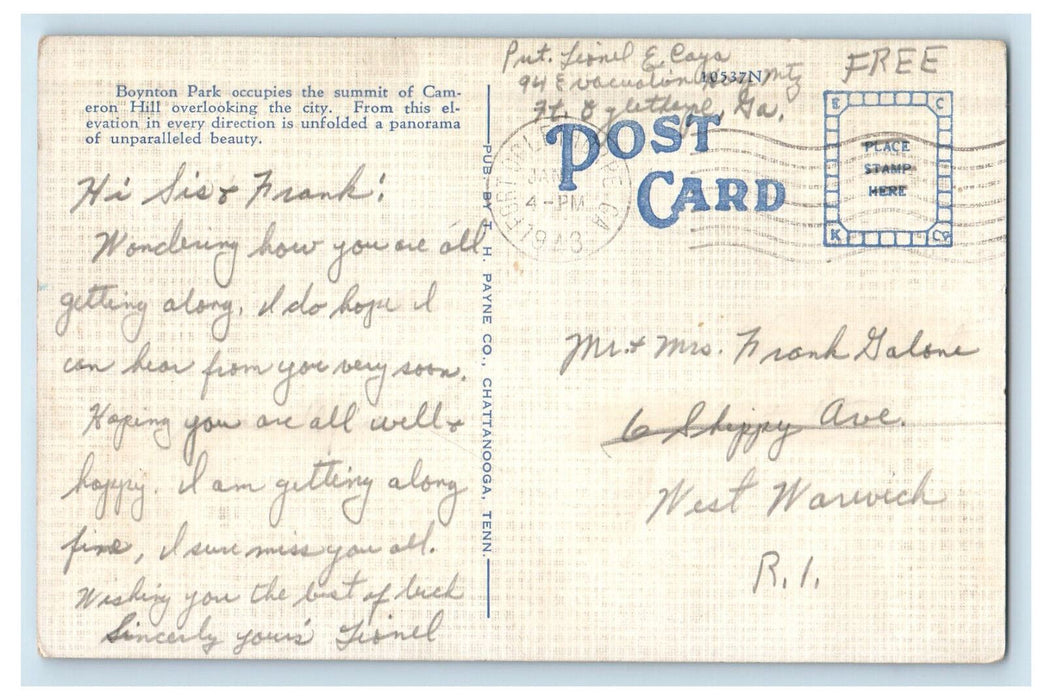 Boynton Park occupies the summit of Cam-
eron Hill overlooking the city. From this el-
evation in every direction is unfolded a panorama
of unparalleled beauty.
Hi Sis & Frank!
Wondering how you are all
getting along. I do hope I
can hear from you very soon.
Hoping you are all well &
happy. I am getting along
fine, I sure miss you all.
Wishing you the best of luck
Sincerly yours' Lionel
PUB. BY T. H. PAYNE CO., CHATTANOOGA, TENN.
Pvt. Lionel E. Caya
94 Evacuation Hosp Mtz
10537N
Ft. Oglethorpe, Ga.
FREE
POST
CARD
JAN
4-PM
1943
GA.
E C
PLACE
STAMP
HERE
K Co
Mr. & Mrs. Frank Galone
6 Shippy Ave.
West Warwick
R.I.